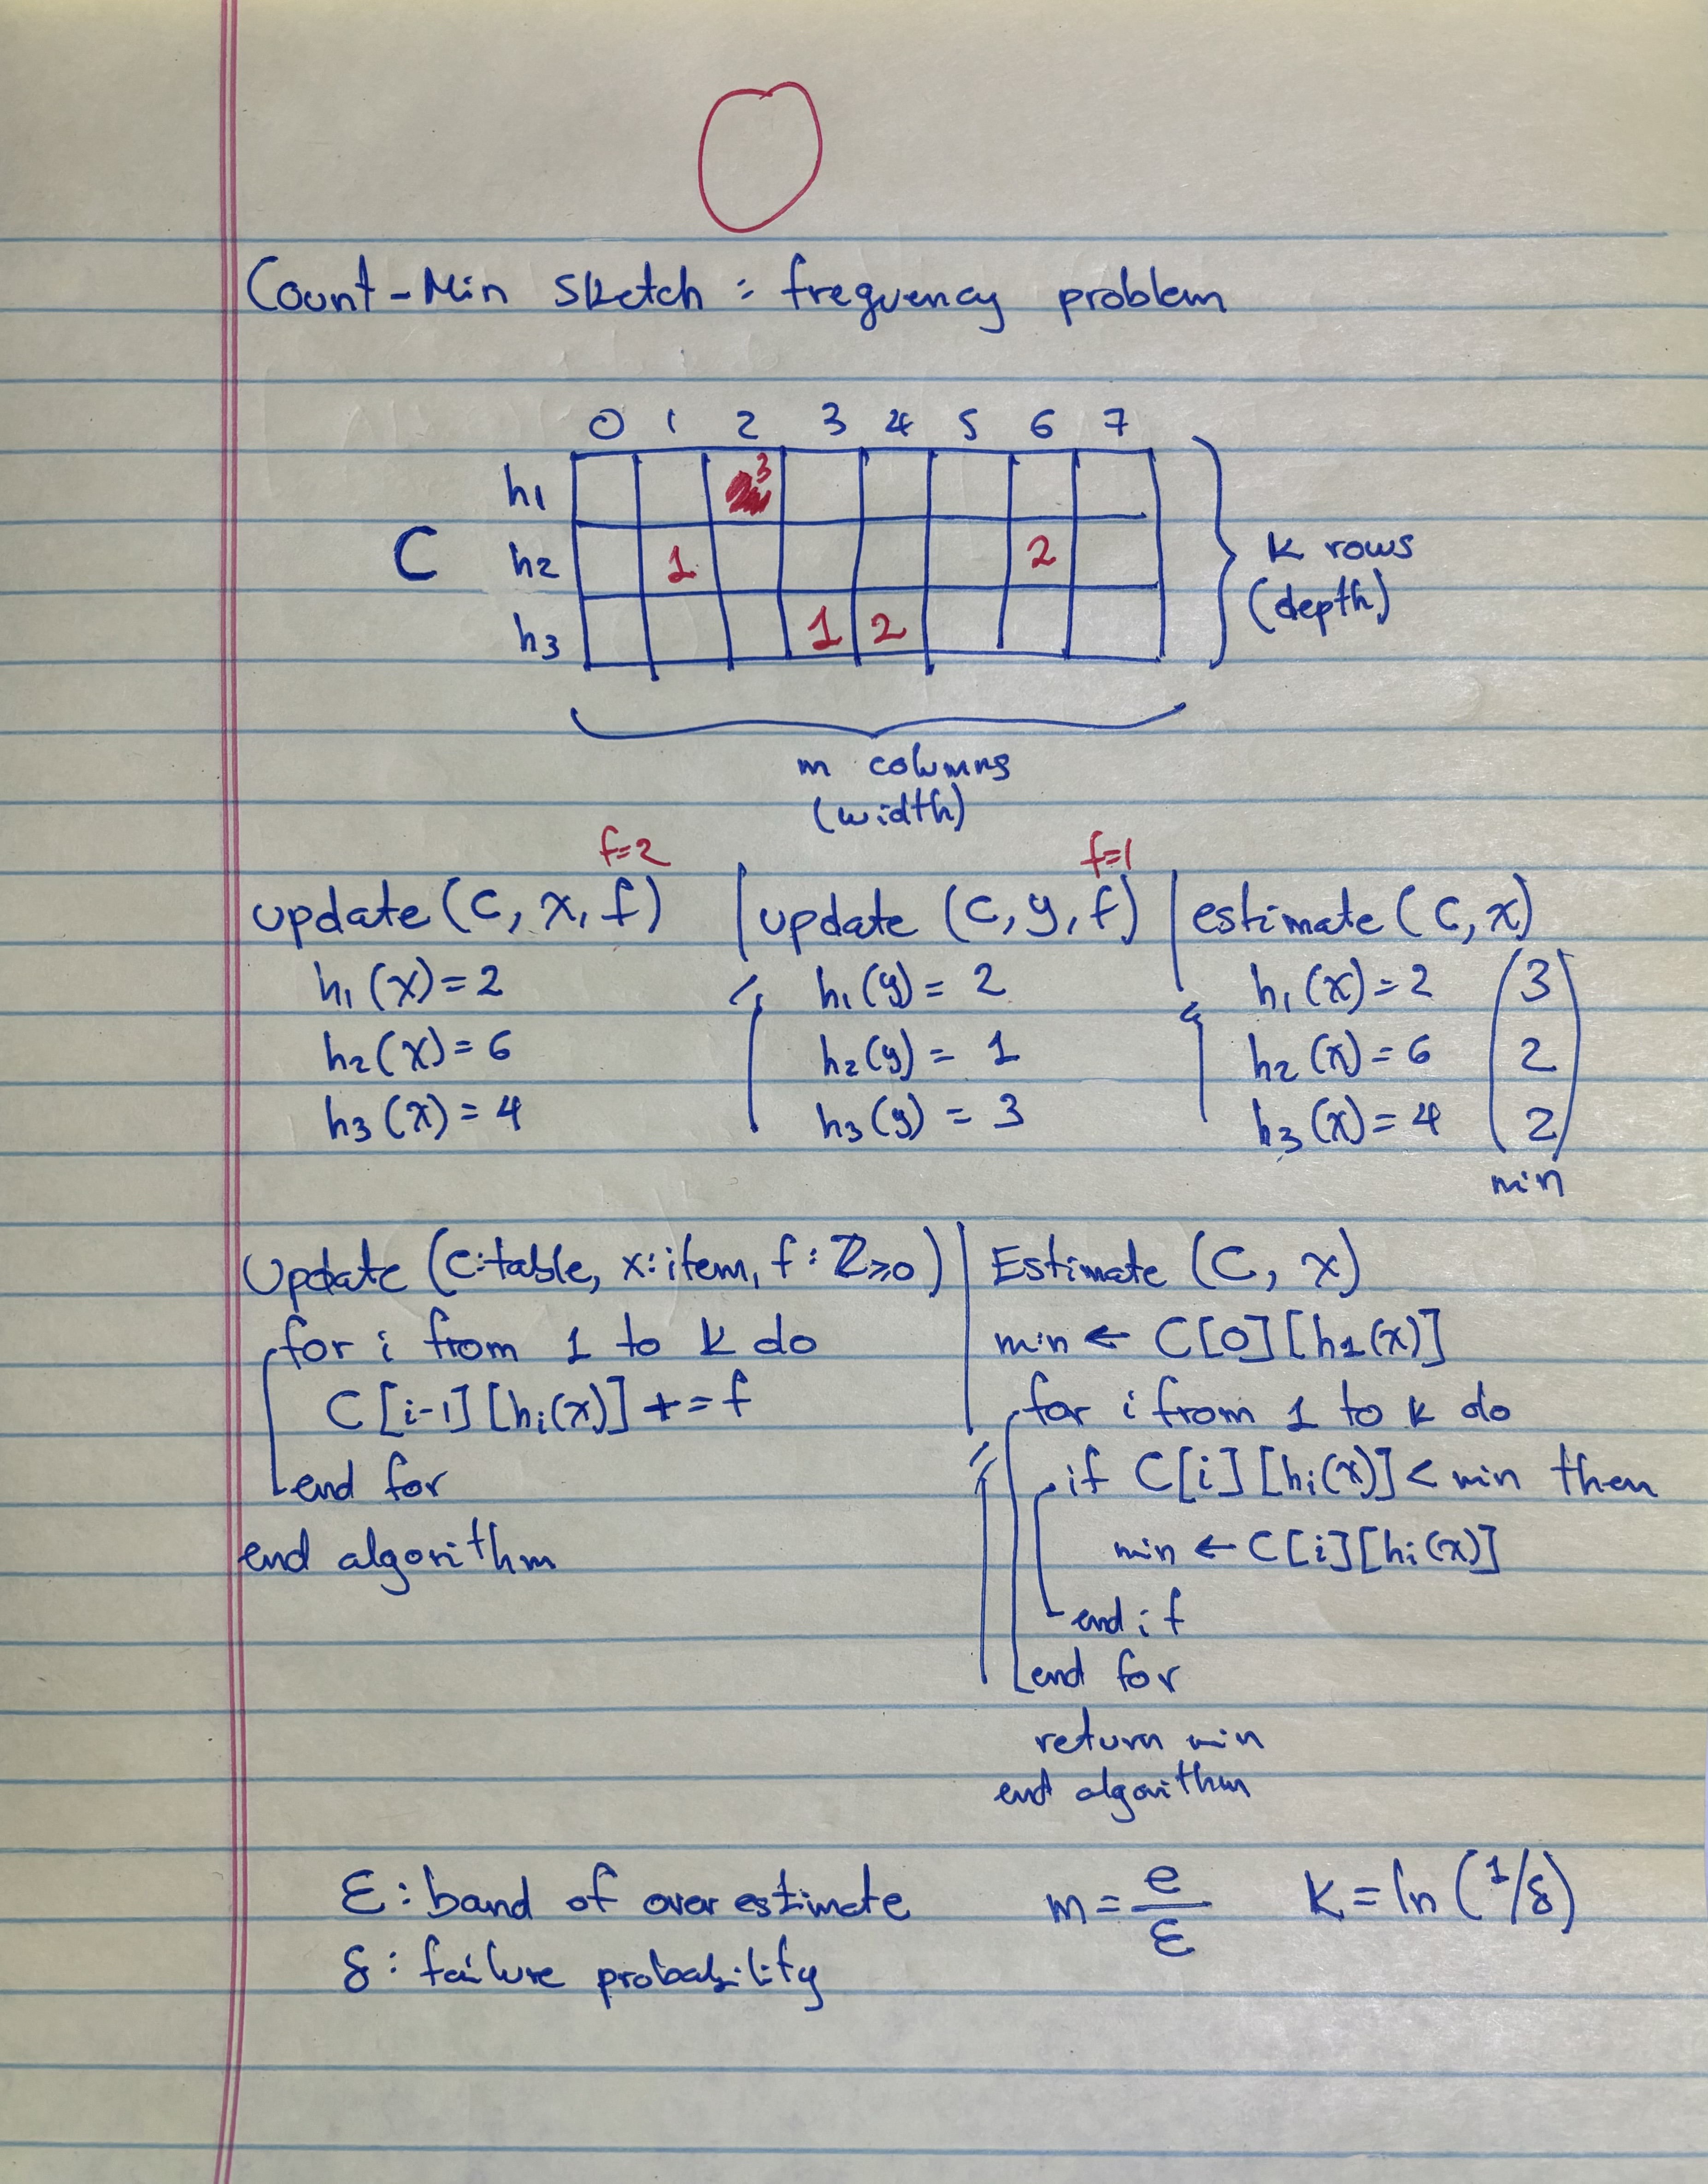 Count-Min Sketch : frequency problem
0 1 2 3 4 5 6 7
h1 3
C h2 1 2
h3 1 2
K rows
(depth)
m columns
(width)
f=2
update (C, x, f)
h1(x)=2
h2(x)=6
h3(x)=4
f=1
update (C, y, f)
h1(y)= 2
h2(y)= 1
h3(y) = 3
estimate (C, x)
h1(x)=2 3
h2(x)=6 2
h3(x)=4 2
min
Update (C:table, x:item, f:ℤ≥0)
for i from 1 to K do
C[i-1][hi(x)] += f
end for
end algorithm
Estimate (C, x)
min ← C[0][h1(x)]
for i from 1 to K do
if C[i][hi(x)] < min then
min ← C[i][hi(x)]
end if
end for
return min
end algorithm
ε: band of over estimate
δ: failure probability
m = e/ε
K = ln (1/δ)